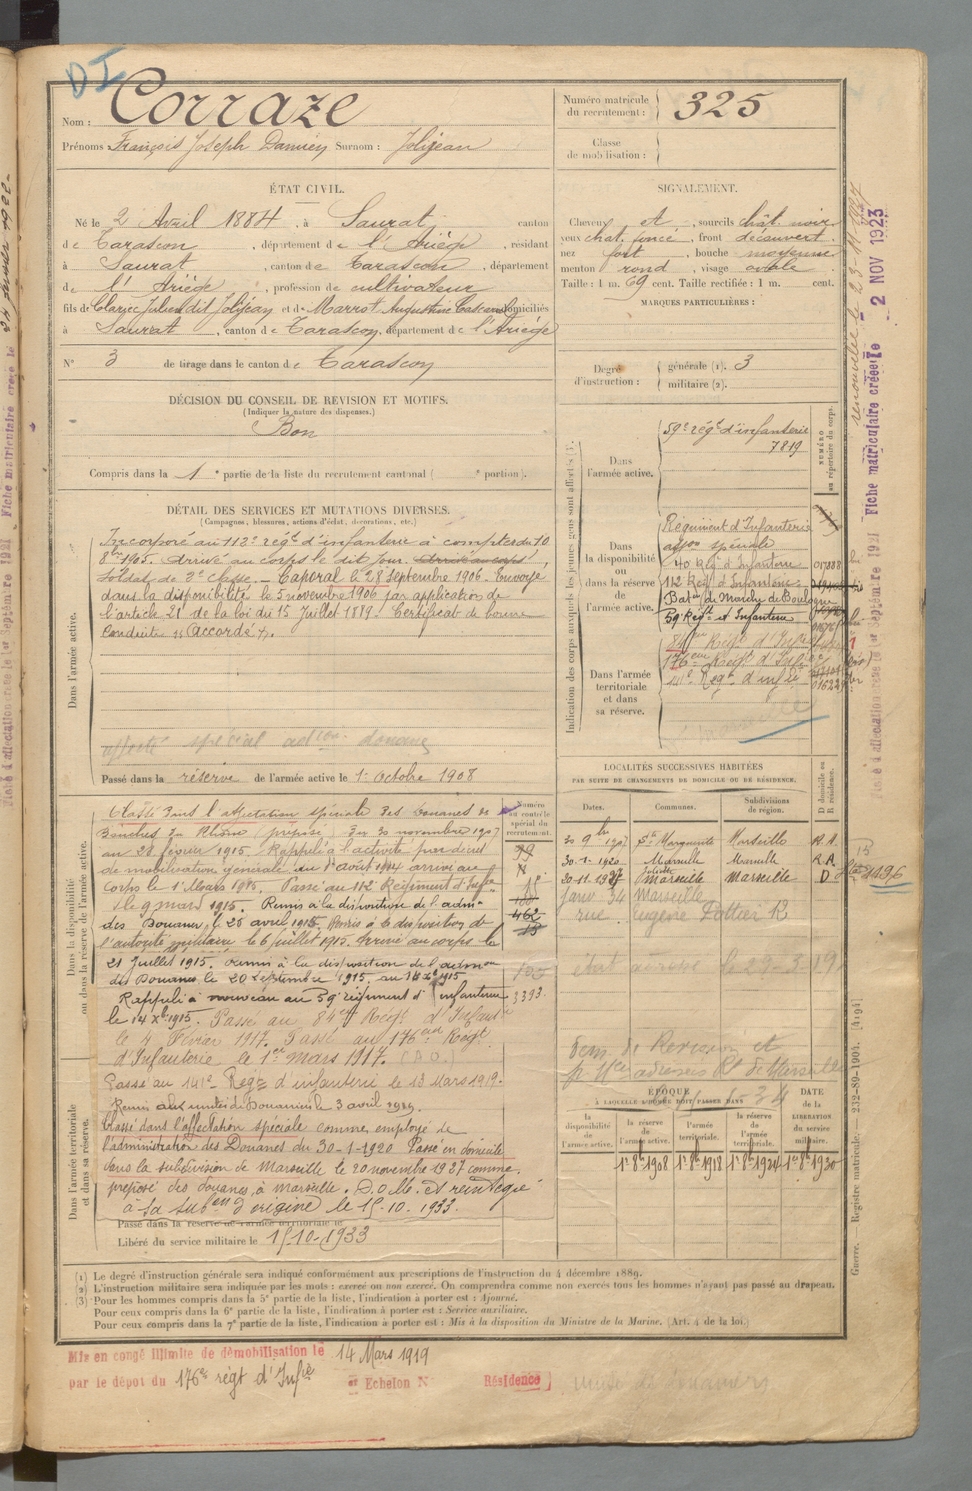 DI
Nom : Corraze
Prénoms : François Joseph Damien Surnom : Jolijeau
Numéro matricule du recrutement : 325
Classe de mobilisation :
ÉTAT CIVIL.
Né le 2 Avril 1884, à Saurat, canton
de Tarascon, département de l'Ariège, résidant
à Saurat, canton de Tarascon, département
de l'Ariège, profession de cultivateur
fils de Julien dit Jolijean et de Marrot Augustine domiciliés
à Saurat, canton de Tarascon, département de l'Ariège
N° 3 de tirage dans le canton de Tarascon
SIGNALEMENT.
Cheveux et, sourcils chât. noir
yeux chat. foncé, front découvert.
nez fort, bouche moyenne
menton rond, visage ovale.
Taille : 1 m. 69 cent. Taille rectifiée : 1 m. cent.
MARQUES PARTICULIÈRES :
Degré d'instruction : générale (1). 3
militaire (2).
DÉCISION DU CONSEIL DE REVISION ET MOTIFS.
(Indiquer la nature des dispenses.)
Bon
Compris dans la 1e partie de la liste du recrutement cantonal ( e portion).
DÉTAIL DES SERVICES ET MUTATIONS DIVERSES.
(Campagnes, blessures, actions d'éclat, décorations, etc.)
Dans l'armée active.
Incorporé au 112e régt d'infanterie à compter du 10
8bre 1905. Arrivé au corps le dit jour. Arrivé au corps
Soldat de 2e classe. - Caporal le 28 Septembre 1906. Envoyé
dans la disponibilité le 5 novembre 1906 par application de
l'article 21 de la loi du 15 Juillet 1889. Certificat de bonne
Conduite "Accordé".
affecté spécial adon douane
Passé dans la réserve de l'armée active le 1er Octobre 1908
Indication des corps auxquels les jeunes gens sont affectés (3).
NUMÉRO au répertoire du corps.
Dans l'armée active.
59e régt d'infanterie
7819
Dans la disponibilité ou dans la réserve de l'armée active.
Régiment d'Infanterie
affon spéciale
40 Régt d'Infanterie
112 Régt d'Infanterie
Baton de Marche de
59 Régt d'Infanterie
Dans l'armée territoriale et dans sa réserve.
84eme Régt d'Infie
176eme Régt d'Infie
141e Régt d'infie
016229
Dans la disponibilité ou dans la réserve de l'armée active.
Numéro au contrôle spécial du recrutement.
Classé dans l'affectation spéciale des Douanes des
Bouches du Rhône (préposé) du 30 novembre 1907
au 28 février 1915. Rappelé à l'activité par décret
de mobilisation générale du 1er août 1914 arrivé au
Corps le 1er Mars 1915. Passé au 112 Régiment d'Infie
le 9 mars 1915. Remis à la disposition de l'admon
des Douanes le 20 avril 1915. Remis à la disposition de
l'autorité militaire le 6 juillet 1915. Arrivé au corps le
21 Juillet 1915. Remis à la disposition de l'admon
des Douanes le 20 septembre 1915. au 14 Xbre 1915
Rappelé à nouveau au 59e régiment d'infanterie
le 14 Xb. 1915. Passé au 84eme Régt d'Infantie
le 4 Février 1917. Passé au 176eme Régt
d'Infanterie le 1er mars 1917.
Passé au 141e Régt d'infanterie le 13 Mars 1919.
462
3393.
Dans l'armée territoriale et dans sa réserve.
Remis aux unités de Douaniers le 3 avril 1919.
Classé dans l'affectation spéciale comme employé de
l'administration des Douanes du 30-1-1920 Passé en domicile
dans la subdivision de Marseille le 20 novembre 1927 comme
préposé des douanes, à Marseille. D.O.M. et réintégré
à sa subon d'origine le 15-10-1933.
Passé dans la réserve de l'armée territoriale le
Libéré du service militaire le 15-10-1933
LOCALITÉS SUCCESSIVES HABITÉES
PAR SUITE DE CHANGEMENTS DE DOMICILE OU DE RÉSIDENCE.
Dates. Communes. Subdivisions de région. D domicile ou R résidence.
30 9bre 1907 Ste Marguerite Marseille R.A.
30-1-1920 Marseille Marseille R.A.
30-11-1927 Marseille Marseille D
Janv 34 Marseille
rue Eugène Pottier 12
ÉPOQUE
À LAQUELLE L'HOMME DOIT PASSER DANS
DATE de la LIBÉRATION du service militaire.
la disponibilité de l'armée active. la réserve de l'armée active. l'armée territoriale. la réserve de l'armée territoriale.
1er 8bre 1908 1er 8bre 1918 1er 8bre 1924 1er 8bre 1930
(1) Le degré d'instruction générale sera indiqué conformément aux prescriptions de l'instruction du 4 décembre 1889.
(2) L'instruction militaire sera indiquée par les mots : exercé ou non exercé. On comprendra comme non exercés tous les hommes n'ayant pas passé au drapeau.
(3) Pour les hommes compris dans la 5e partie de la liste, l'indication à porter est : Ajourné.
Pour ceux compris dans la 6e partie de la liste, l'indication à porter est : Service auxiliaire.
Pour ceux compris dans la 7e partie de la liste, l'indication à porter est : Mis à la disposition du Ministre de la Marine. (Art. 4 de la loi.)
Mis en congé illimité de démobilisation le 14 Mars 1919
par le dépôt du 176e régt d'Infie Echelon N° Résidence
Guerre. — Registre matricule. — 232-89-1904. [4194]
Fiche matriculaire créée le 2 NOV 1923